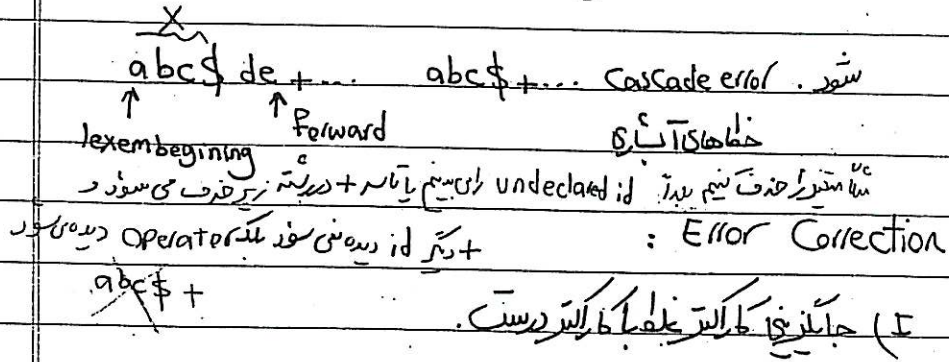 X
شود. cascade error abc$+... abc$ de+...
↑ ↑
lexembegining Forward
خطاهای آبشاری
مثلا متغیر را حذف کنیم بعداً undeclared id را می‌بینیم یا تا سر + در رشته زیر حذف می‌شود و
+ دیگر id دیده نمی‌شود بلکه operator دیده می‌شود
Error Correction :
abc$ +
I) جایگزینی کاراکتر غلط با کاراکتر درست.